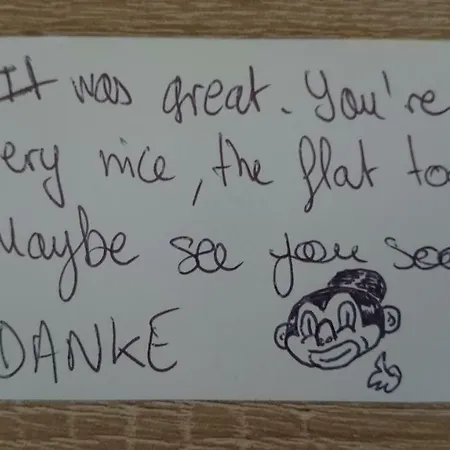 It was great. You're
ery nice, the flat to
Maybe see you see
DANKE